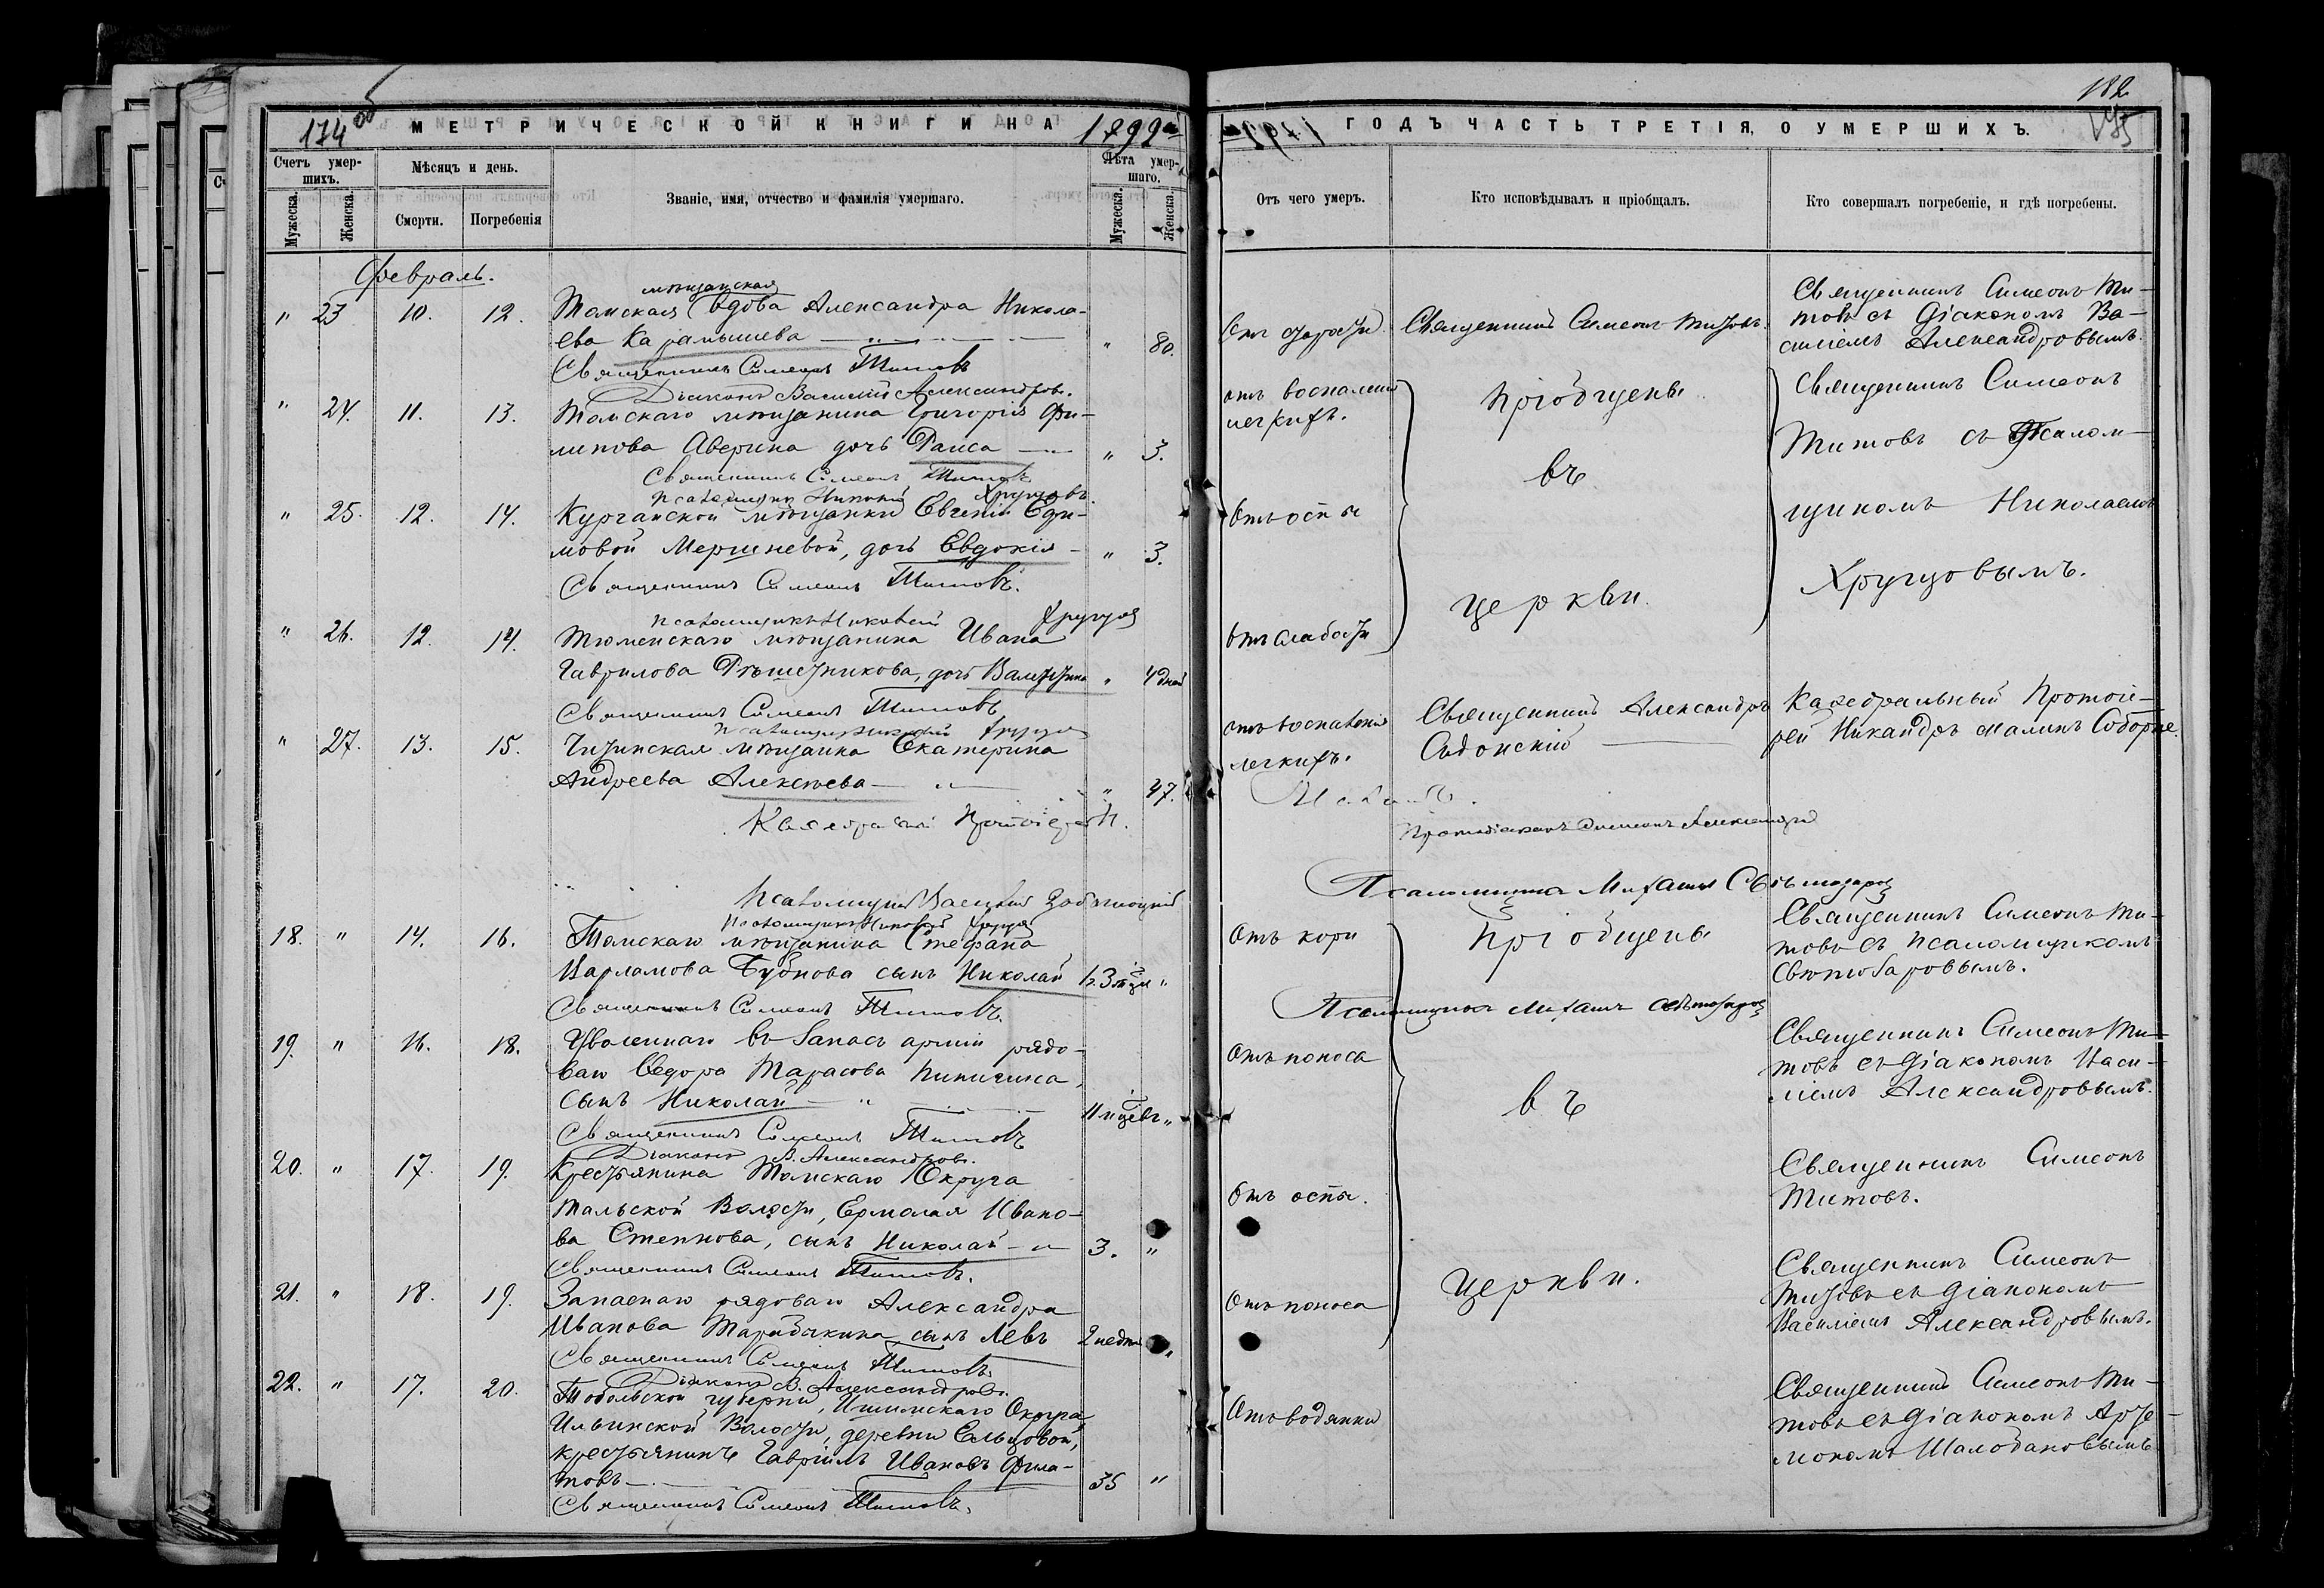 174 об
МЕТРИЧЕСКОЙ КНИГИ НА 1899й
Счетъ умер-
шихъ.
Мѣсяцъ и день.
Званіе, имя, отчество и фамилія умершаго.
Лѣта умер-
шаго.
Мужеска.
Женска.
Смерти.
Погребенія
Мужеска.
Женска.
Февраль.
мѣщанская
" 23 10. 12. Томская вдова Александра Никола-
ева Карамышева " 80.
Священникъ Симеонъ Титовъ
Діаконъ Василий Александров.
" 24. 11. 13. Томскаго мѣщанина Григорія Фи-
липова Аверина дочь Раиса " 3.
Священникъ Симеонъ Титовъ
Псаломщикъ Николай Хрущовъ.
" 25. 12. 14. Курганской мѣщанки Евгеніи Ефи-
мовой Мершневой, дочь Евдокія " 3.
Священникъ Симеонъ Титовъ.
Псаломщикъ Николай Хрущов
" 26. 12. 14. Тюменскаго мѣщанина Ивана
Гаврилова Рѣшетникова, дочь Валентина " 4 дней
Священникъ Симеонъ Титовъ
Псаломщикъ Николай Хрущов
" 27. 13. 15. Читинская мѣщанка Екатерина
Андреева Алексѣева " 47.
Каѳедральный Протоіерей Н.
Псаломщикъ Василий
Псаломщикъ Николай Хрущов
18. " 14. 16. Томскаго мѣщанина Стефана
Варламова Бубнова сынъ Николай "
Священникъ Симеонъ Титовъ.
19. " 16. 18. Уволеннаго въ запасъ арміи рядо-
ваго Ѳедора Тарасова Пипичина,
сынъ Николай " 11 мцевъ "
Священникъ Симеонъ Титовъ
Діаконъ В. Александров.
20. " 17. 19. Крестьянина Томскаго Округа
Тальской Волости, Ермолая Ивано-
ва Степнова, сынъ Николай 3. "
Священникъ Симеонъ Титовъ.
21. " 18. 19. Запаснаго рядоваго Александра
Иванова Тарабыкина сынъ Левъ 2 недѣли "
Священникъ Симеонъ Титовъ.
Діаконъ В. Александров.
22. " 17. 20. Тобольской губерніи, Ишимскаго Округа,
Ильинской Волости, деревни Ельцовой,
крестьянинъ Гавріилъ Ивановъ Фила-
товъ 35 "
Священникъ Симеонъ Титовъ.
182
ГОДЪ ЧАСТЬ ТРЕТІЯ, О УМЕРШИХЪ.
Отъ чего умеръ.
Кто исповѣдывалъ и пріобщалъ.
Кто совершалъ погребеніе, и гдѣ погребены.
Отъ старости Священникъ Симеонъ Титовъ.
Священникъ Симеонъ Ти-
товъ съ діакономъ Ва-
силіемъ Александровымъ.
отъ воспаленія
легкихъ.
Пріобщены
въ
церкви.
Священникъ Симеонъ
Титовъ съ Псалом-
щикомъ Николаемъ
Хрущовымъ.
Отъ оспы
отъ слабости
отъ воспаленія
легкихъ.
Священникъ Александръ
Сидонскій
Каѳедральный Протоіе-
рей Никандръ Малинъ Соборне.
Малинъ.
Протодіаконъ Симеонъ Александров
Псаломщикъ Михаилъ Свѣтозаровъ
Отъ кори
Пріобщены
въ
церкви.
Священникъ Симеонъ Ти-
товъ съ Псаломщикомъ
Свѣтозаровымъ.
Псаломщикъ Михаилъ Свѣтозаровъ
Отъ поноса
Священникъ Симеонъ Ти-
товъ съ діакономъ Васи-
ліемъ Александровымъ.
Отъ оспы.
Священникъ Симеонъ
Титовъ.
Отъ поноса
Священникъ Симеонъ
Титовъ съ діакономъ
Василіемъ Александровымъ.
Отъ водянки
Священникъ Симеонъ Ти-
товъ съ діакономъ Арте-
мономъ Шалобановымъ